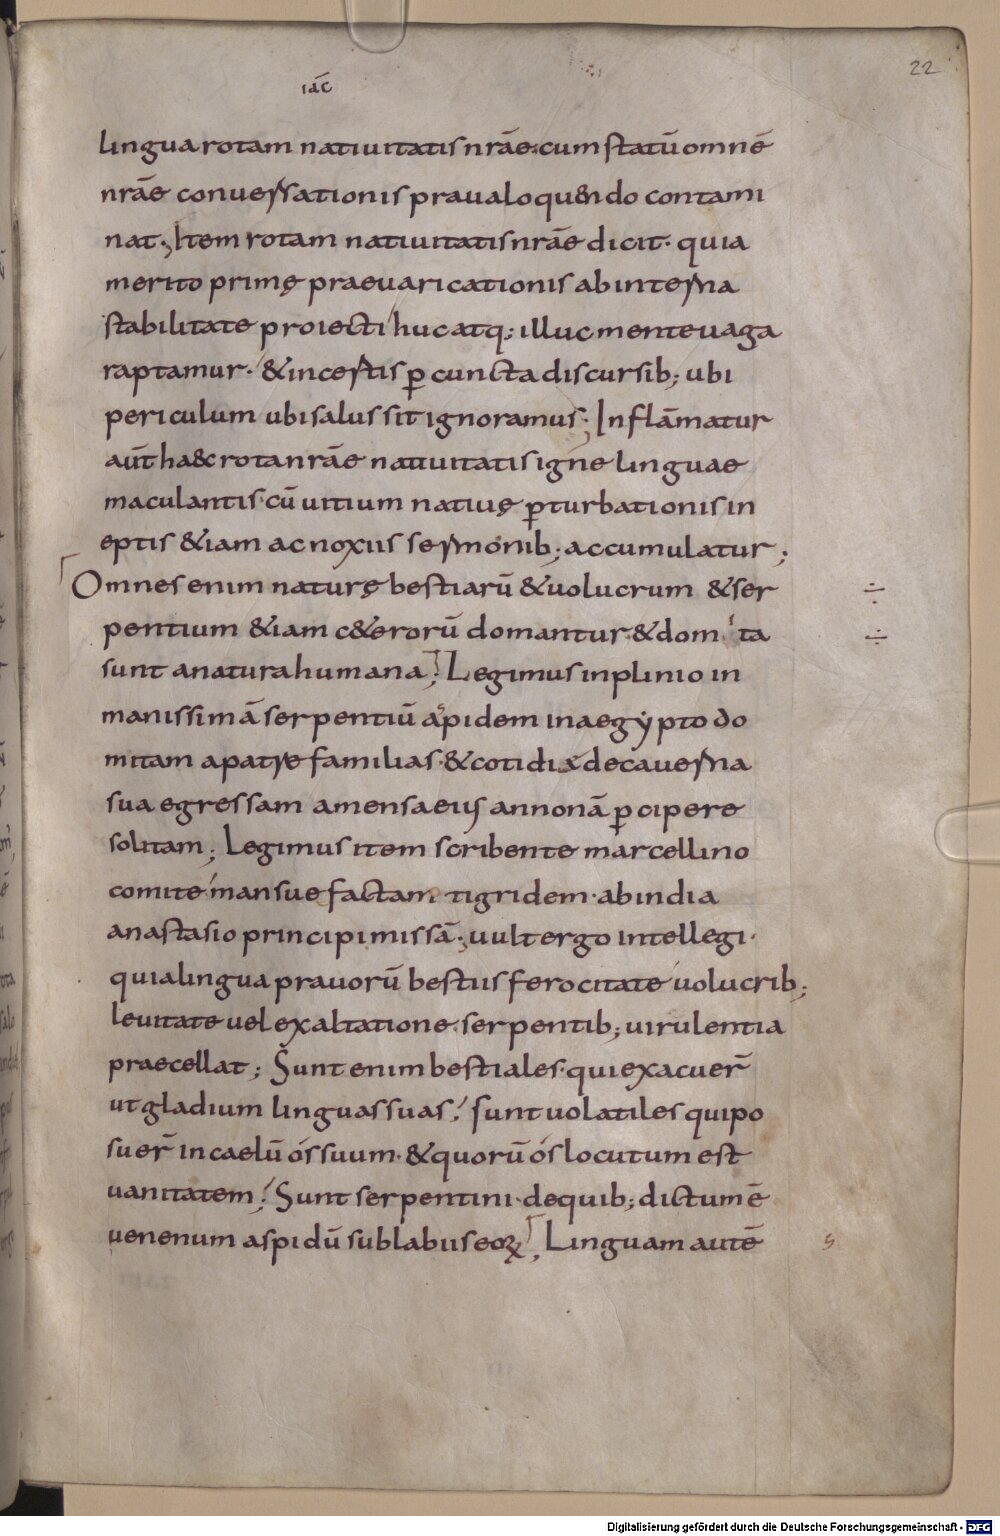 22
iac̄
lingua rotam natiuitatis nr̄ae. cum statū omnē
nr̄ae conuersationis praua loquendo contami
nat; Item rotam natiuitatis nr̄ae dicit. quia
merito primę praeuaricationis ab interna
stabilitate proiecti huc atq; illuc mente uaga
raptamur. & incestis ꝑ cuncta discursib; ubi
periculum ubi salus sit ignoramus; Inflāmatur
aūt haec rota nr̄ae natiuitatis igne linguae
maculantis. cū uitium natiuę ꝑturbationis in
eptis &iam ac noxiis sermonib; accumulatur;
Omnes enim naturę bestiarū & uolucrum & ser
pentium &iam c&erorū domantur. & domita
sunt a natura humana; Legimus in plinio in
manissimā serpentiū aspidem in aegẏpto do
mitam a patre familias. & cotidie de cauerna
sua egressam a mensa eius annonā ꝑcipere
solitam; Legimus item scribente marcellino
comite mansuefactam tigridem. ab india
anastasio principi missā; uult ergo intellegi.
quia lingua prauorū bestiis ferocitate uolucrib;
leuitate uel exaltatione. serpentib; uirulentia
praecellat; Sunt enim bestiales. qui exacuer̄
ut gladium linguas suas; sunt uolatiles qui po
suer̄ in caelū ós suum. & quorū ós locutum est
uanitatem; Sunt serpentini. de quib; dictum ē
uenenum aspidū sub labiis eoꝝ; Linguam autē
Digitalisierung gefördert durch die Deutsche Forschungsgemeinschaft - DFG